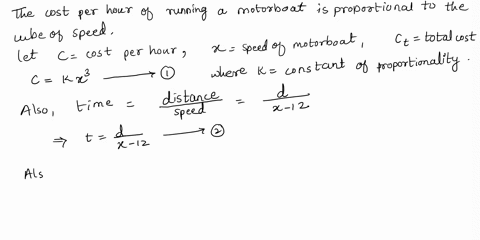 The cost per hour of running a motorboat is proportional to the
cube of speed.
let C = cost per hour, x = speed of motorboat, Ct = total cost
C = Kx³ → ① where K = constant of proportionality.
Also, time = distance/speed = d/x-12
⇒ t = d/x-12 → ②
Als